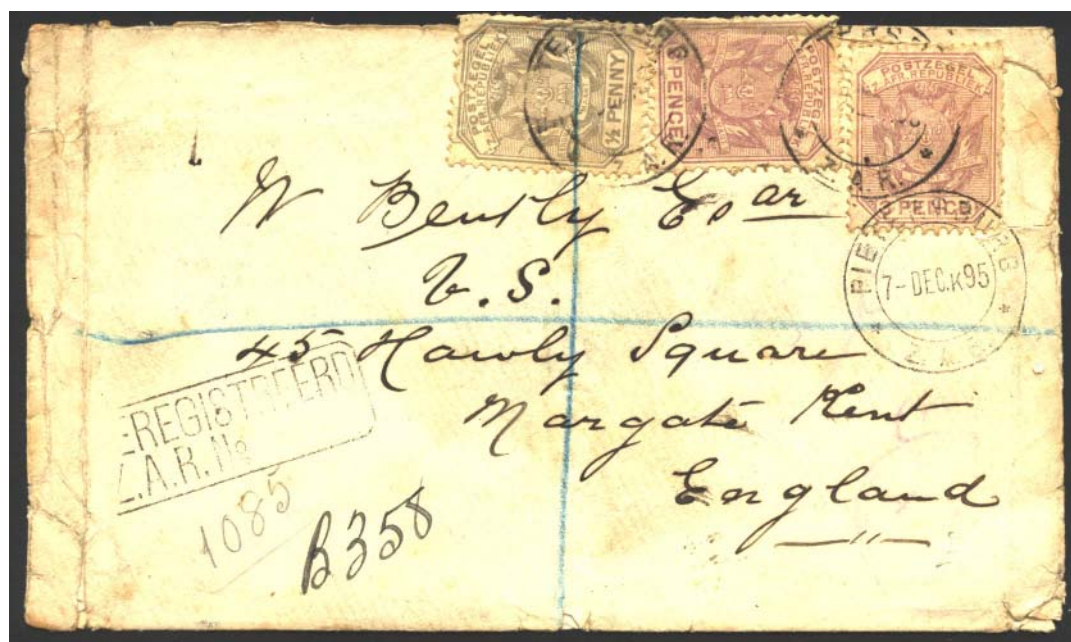 POSTZEGEL
Z. AFR. REPUBLIEK
½ PENNY
PENCE
POSTZEGEL
Z. AFR. REPUBLIEK
POSTZEGEL
Z. AFR. REPUBLIEK
PENCE
Z.A.R.
7-DEC.K95
W Bently Esqr
V. S.
45 Hawly Square
Margate Kent
England
EREGISTREERD
Z.A.R. No
1085
B358